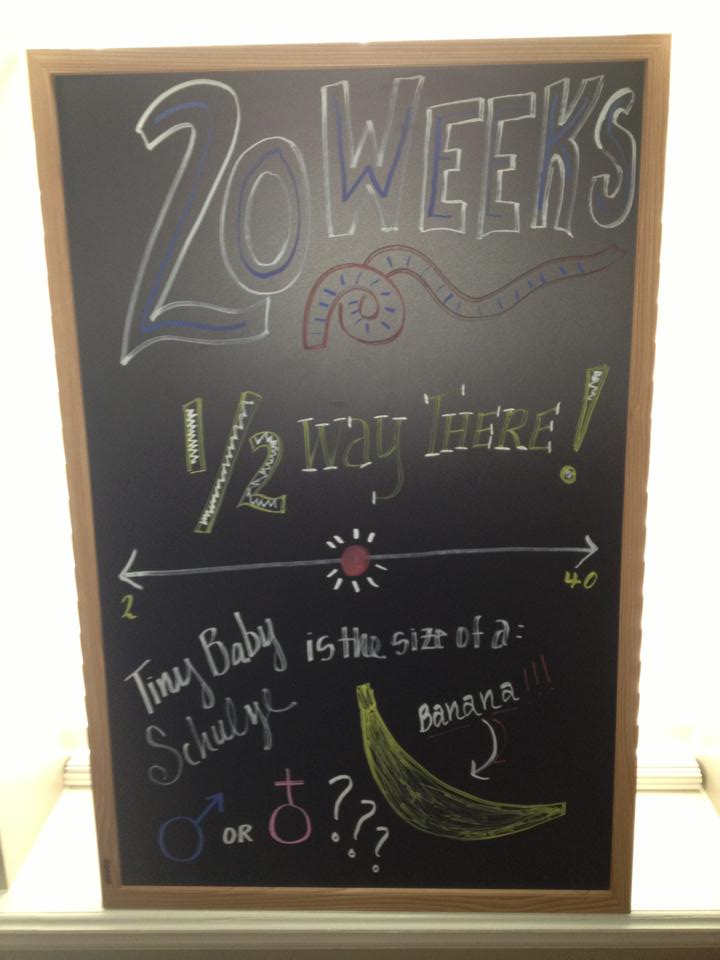 20 WEEKS
1/2 way THERE!
2 40
Tiny Baby is the size of a:
Schulze
Banana!!!
♂ OR ♀ ???